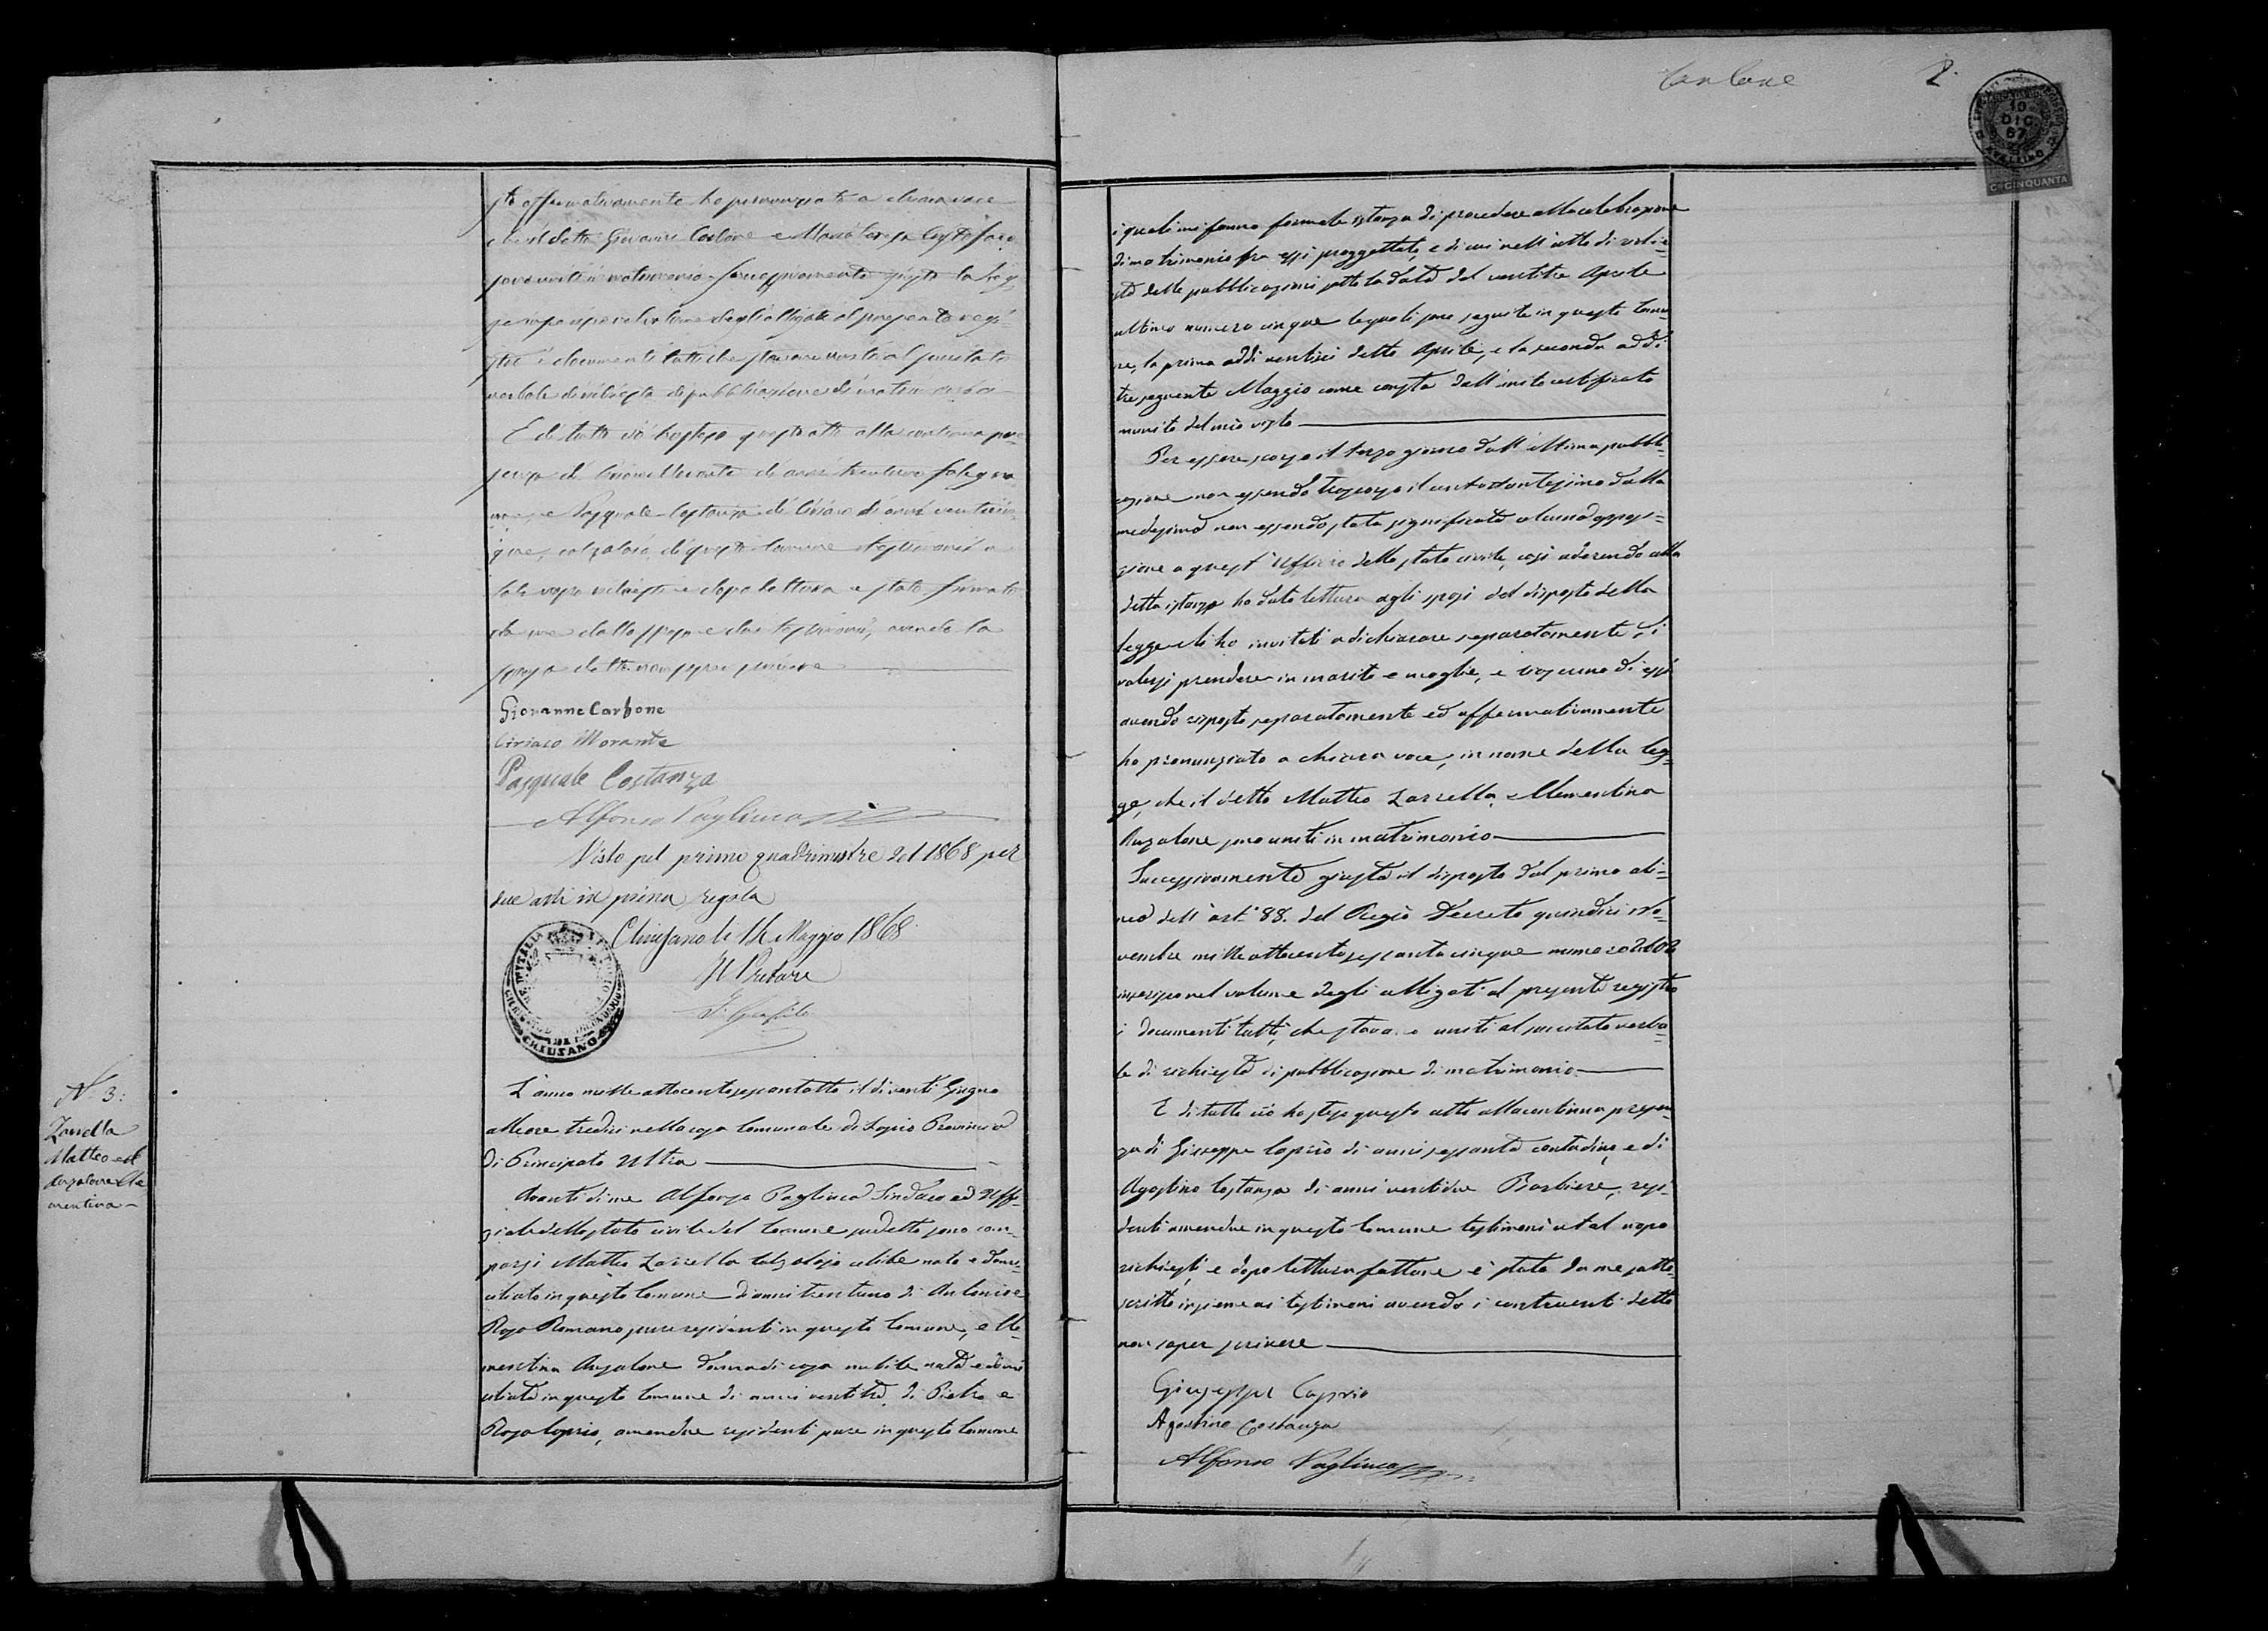 sto affermativamente ho pronunziato a chiara voce
che il detto Giovanni Carbone e Maria
sono uniti in matrimonio. Successivamente giusta la leg-
ge volume degli alligati al presente regi-
stro i documenti tutti che stavano uniti al puretato
verbale di richiesta di pubblicazione di matrimonio
E di tutto ciò ho steso quest'atto alla continua pre-
senza di Ciriaco Morante di anni trentuno falegna-
me, e Pasquale Costanza di Ciriaco di anni venticin-
que, calzolaio, di questo Comune testimoni a
tale uopo richiesti e dopo lettura è stato firmato
da me dallo sposo e due testimoni, avendo la
sposa detto non saper scrivere
Giovanne Carbone
Ciriaco Morante
Pasquale Costanza
Alfonso Pagliuca
Visto pel primo quadrimestre del 1868 per
due atti in piena regola
Chiusano li 14 Maggio 1868
Il Pretore
CHIUSANO
N. 3:
Zarrella
Matteo ed
Anzalone Cle
mentina
L'anno mille ottocentosessantotto il dì venti Giugno
alle ore tredici nella casa Comunale di Sorio Provincia
di Principato Ultra
Avanti di me Alfonso Pagliuca Sindaco ed Uffi-
ziale dello stato civile del Comune sudetto sono com-
parsi Matteo Zarrella calzolajo celibe nato e domi-
ciliato in questo Comune d'anni trentuno di Antonio e
Rosa Romano pure residenti in questo Comune, e Cle-
mentina Anzalone donna di casa nubile nata e domi
ciliata in questo Comune di anni ventitre, di Pietro e
Rosa Caprio, amendue residenti pure in questo Comune
Carbone
2.
10
DIC.
67
AVELLINO
C.mi CINQUANTA
i quali mi fanno formale istanza di procedere alla celebrazione
di matrimonio fra essi progettato, e di cui nell'atto di richie-
sta delle pubblicazioni sotto la data del ventitre Aprile
ultimo numero cinque le quali sono seguite in questo Comu-
ne, la prima addì ventisei detto Aprile, e la seconda addì
tre seguente Maggio come consta dall'unito certificato
munito del mio visto
Per essere scorso il terzo giorno dall'ultima pubbli-
cazione non essendo trascorso il centottantesimo dalla
medesima non essendo stata significata alcuna opposi-
zione a quest'Ufficio dello stato civile, così aderendo alla
detta istanza ho dato lettura agli sposi del disposto della
legge e li ho invitati a dichiarare separatamente, se
volersi prendere in marito e moglie, e ciascuno di essi
avendo risposto separatamente ed affermativamente
ho pronunziato a chiara voce, in nome della leg-
ge, che il detto Matteo Zarrella, e Clementina
Anzalone sono uniti in matrimonio
Successivamente giusta il disposto del primo ali-
nea dell'art.° 88. del Regio Decreto quindici No-
vembre mille ottocento sessantacinque numero 2602
inserisco nel volume degli alligati al presente registro
i documenti tutti, che stavano uniti al puretato verba-
le di richiesta di pubblicazione di matrimonio
E di tutto ciò ho steso questo atto alla continua presen-
za di Giuseppe Caprio di anni sessanta contadino, e di
Agostino Costanza di anni ventidue Barbiere, resi-
denti amendue in questo Comune testimoni a tal uopo
richiesti, e dopo lettura fattane è stato da me sotto
scritto insieme ai testimoni avendo i contraenti detto
non saper scrivere
Giuseppe Caprio
Agostino Costanza
Alfonso Pagliuca